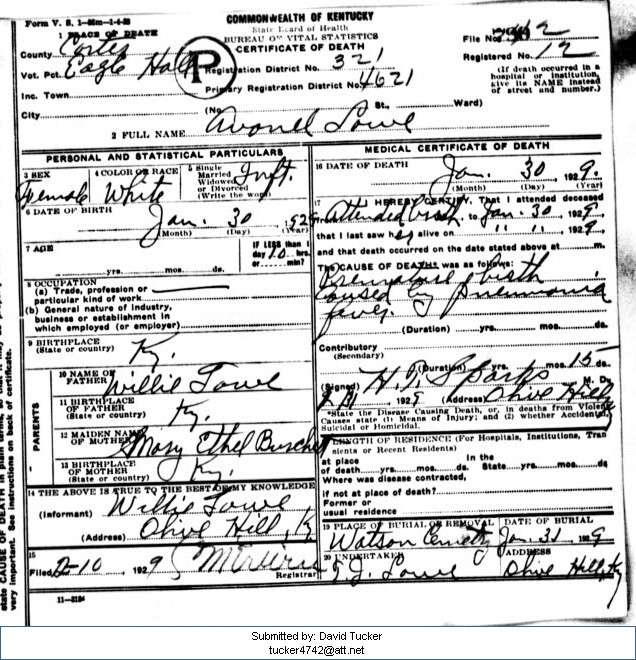 Form V. S. 1-
COMMONWEALTH OF KENTUCKY
State Board of Health
BUREAU OF VITAL STATISTICS
CERTIFICATE OF DEATH
1 PLACE OF DEATH
County Carter
Vot. Pct. Eagle Hall
Inc. Town
City
P
Registration District No. 321
Primary Registration District No. 4621
(No. St., Ward)
File No.
Registered No. 12
(If death occurred in a
hospital or institution,
give its NAME instead
of street and number.)
2 FULL NAME Avonel Lowe
PERSONAL AND STATISTICAL PARTICULARS
3 SEX
Female
4 COLOR OR RACE
White
5 Single
Married
Widowed
or Divorced
(Write the word)
Inft.
6 DATE OF BIRTH
Jan. 30, 1929
(Month) (Day) (Year)
7 AGE
yrs. mos. ds.
IF LESS than 1
day 10 hrs.
or min?
8 OCCUPATION
(a) Trade, profession or
particular kind of work
(b) General nature of industry,
business or establishment in
which employed (or employer)
9 BIRTHPLACE
(State or country)
Ky.
PARENTS
10 NAME OF
FATHER
Willie Lowe
11 BIRTHPLACE
OF FATHER
(State or country)
Ky.
12 MAIDEN NAME
OF MOTHER
Mary Ethel
13 BIRTHPLACE
OF MOTHER
(State or country)
Ky.
14 THE ABOVE IS TRUE TO THE BEST OF MY KNOWLEDGE
(Informant) Willie Lowe
(Address) Olive Hill, K
15
Filed 2-10, 1929
Registrar
11-3184
MEDICAL CERTIFICATE OF DEATH
16 DATE OF DEATH
Jan. 30, 1929.
(Month) (Day) (Year)
17 I HEREBY CERTIFY, That I attended deceased
from Attended birth, to Jan. 30, 1929,
that I last saw her alive on " " ", 1929,
and that death occurred on the date stated above at m.
The CAUSE OF DEATH* was as follows:
Premature birth
caused by pneumonia
fever.
(Duration) yrs. mos. ds.
Contributory
(Secondary)
(Duration) yrs. mos. 15 ds.
(Signed) Sparks M. D.
1929 (Address) Olive Hill
*State the Disease Causing Death, or, in deaths from Violent
Causes state (1) Means of Injury; and (2) whether Accidental,
Suicidal or Homicidal.
LENGTH OF RESIDENCE (For Hospitals, Institutions, Tran
sients or Recent Residents)
at place In the
of death yrs. mos. ds. State yrs. mos. ds
Where was disease contracted,
if not at place of death?
Former or
usual residence
19 PLACE OF BURIAL OR REMOVAL
Watson Cemetery
DATE OF BURIAL
Jan. 31, 1929
20 UNDERTAKER
T. J. Lowe
ADDRESS
Olive Hill, Ky
state CAUSE OF DEATH in plain terms, so that it may be
very important. See instructions on back of certificate.
Submitted by: David Tucker
tucker4742@att.net